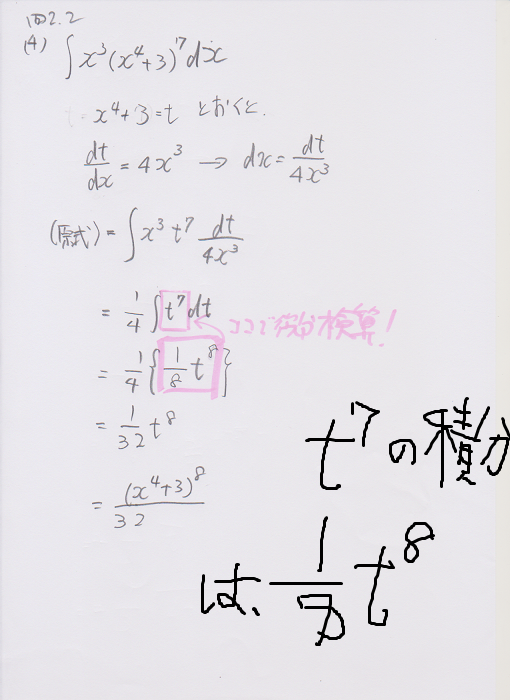 問2.2
(4) ∫x³(x⁴+3)⁷dx
x⁴+3=t とおくと.
dt/dx = 4x³ → dx = dt/4x³
(原式) = ∫x³ t⁷ dt/4x³
= 1/4 ∫t⁷dt
ココで微分検算!
= 1/4 { 1/8 t⁸ }
= 1/32 t⁸
= (x⁴+3)⁸/32
t⁷の積分
は、1/8 t⁸